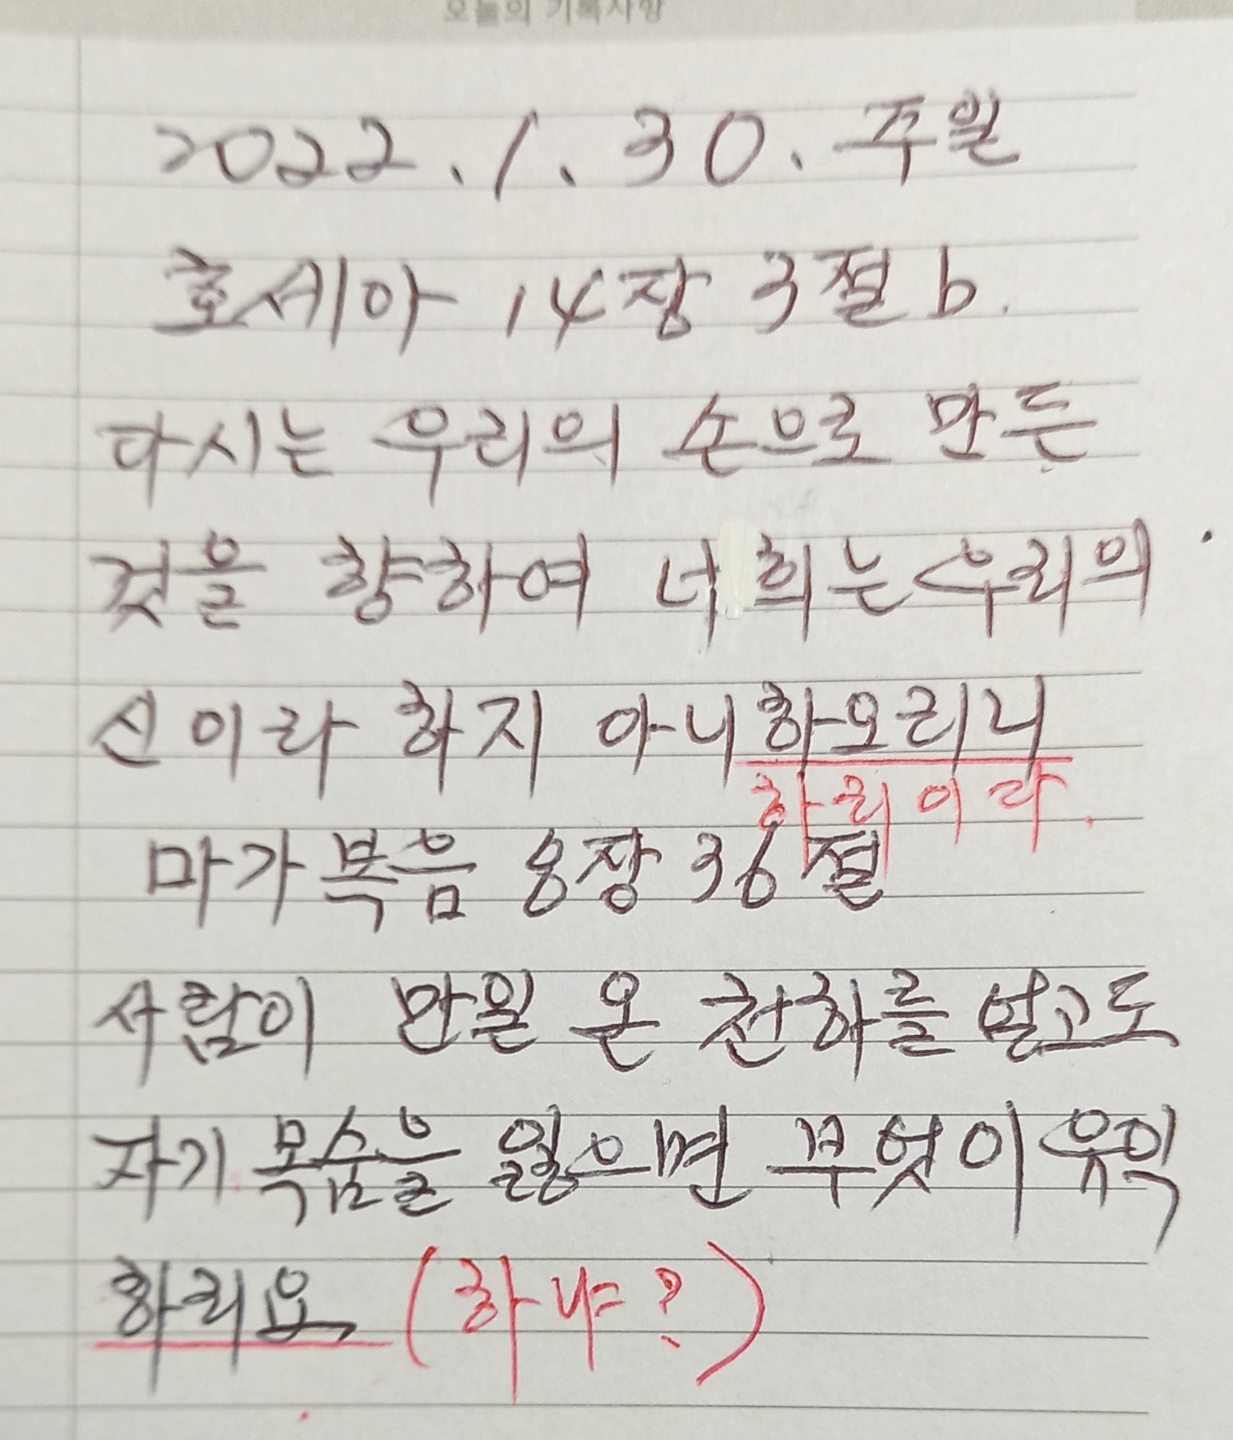 오늘의 기록사항
2022.1.30. 주일
호세아 14장 3절 b.
다시는 우리의 손으로 만든
것을 향하여 너희는 우리의
신이라 하지 아니하오리니
하리이라.
마가복음 8장 36절
사람이 만일 온 천하를 얻고도
자기 목숨을 잃으면 무엇이 유익
하리요 (하냐?)